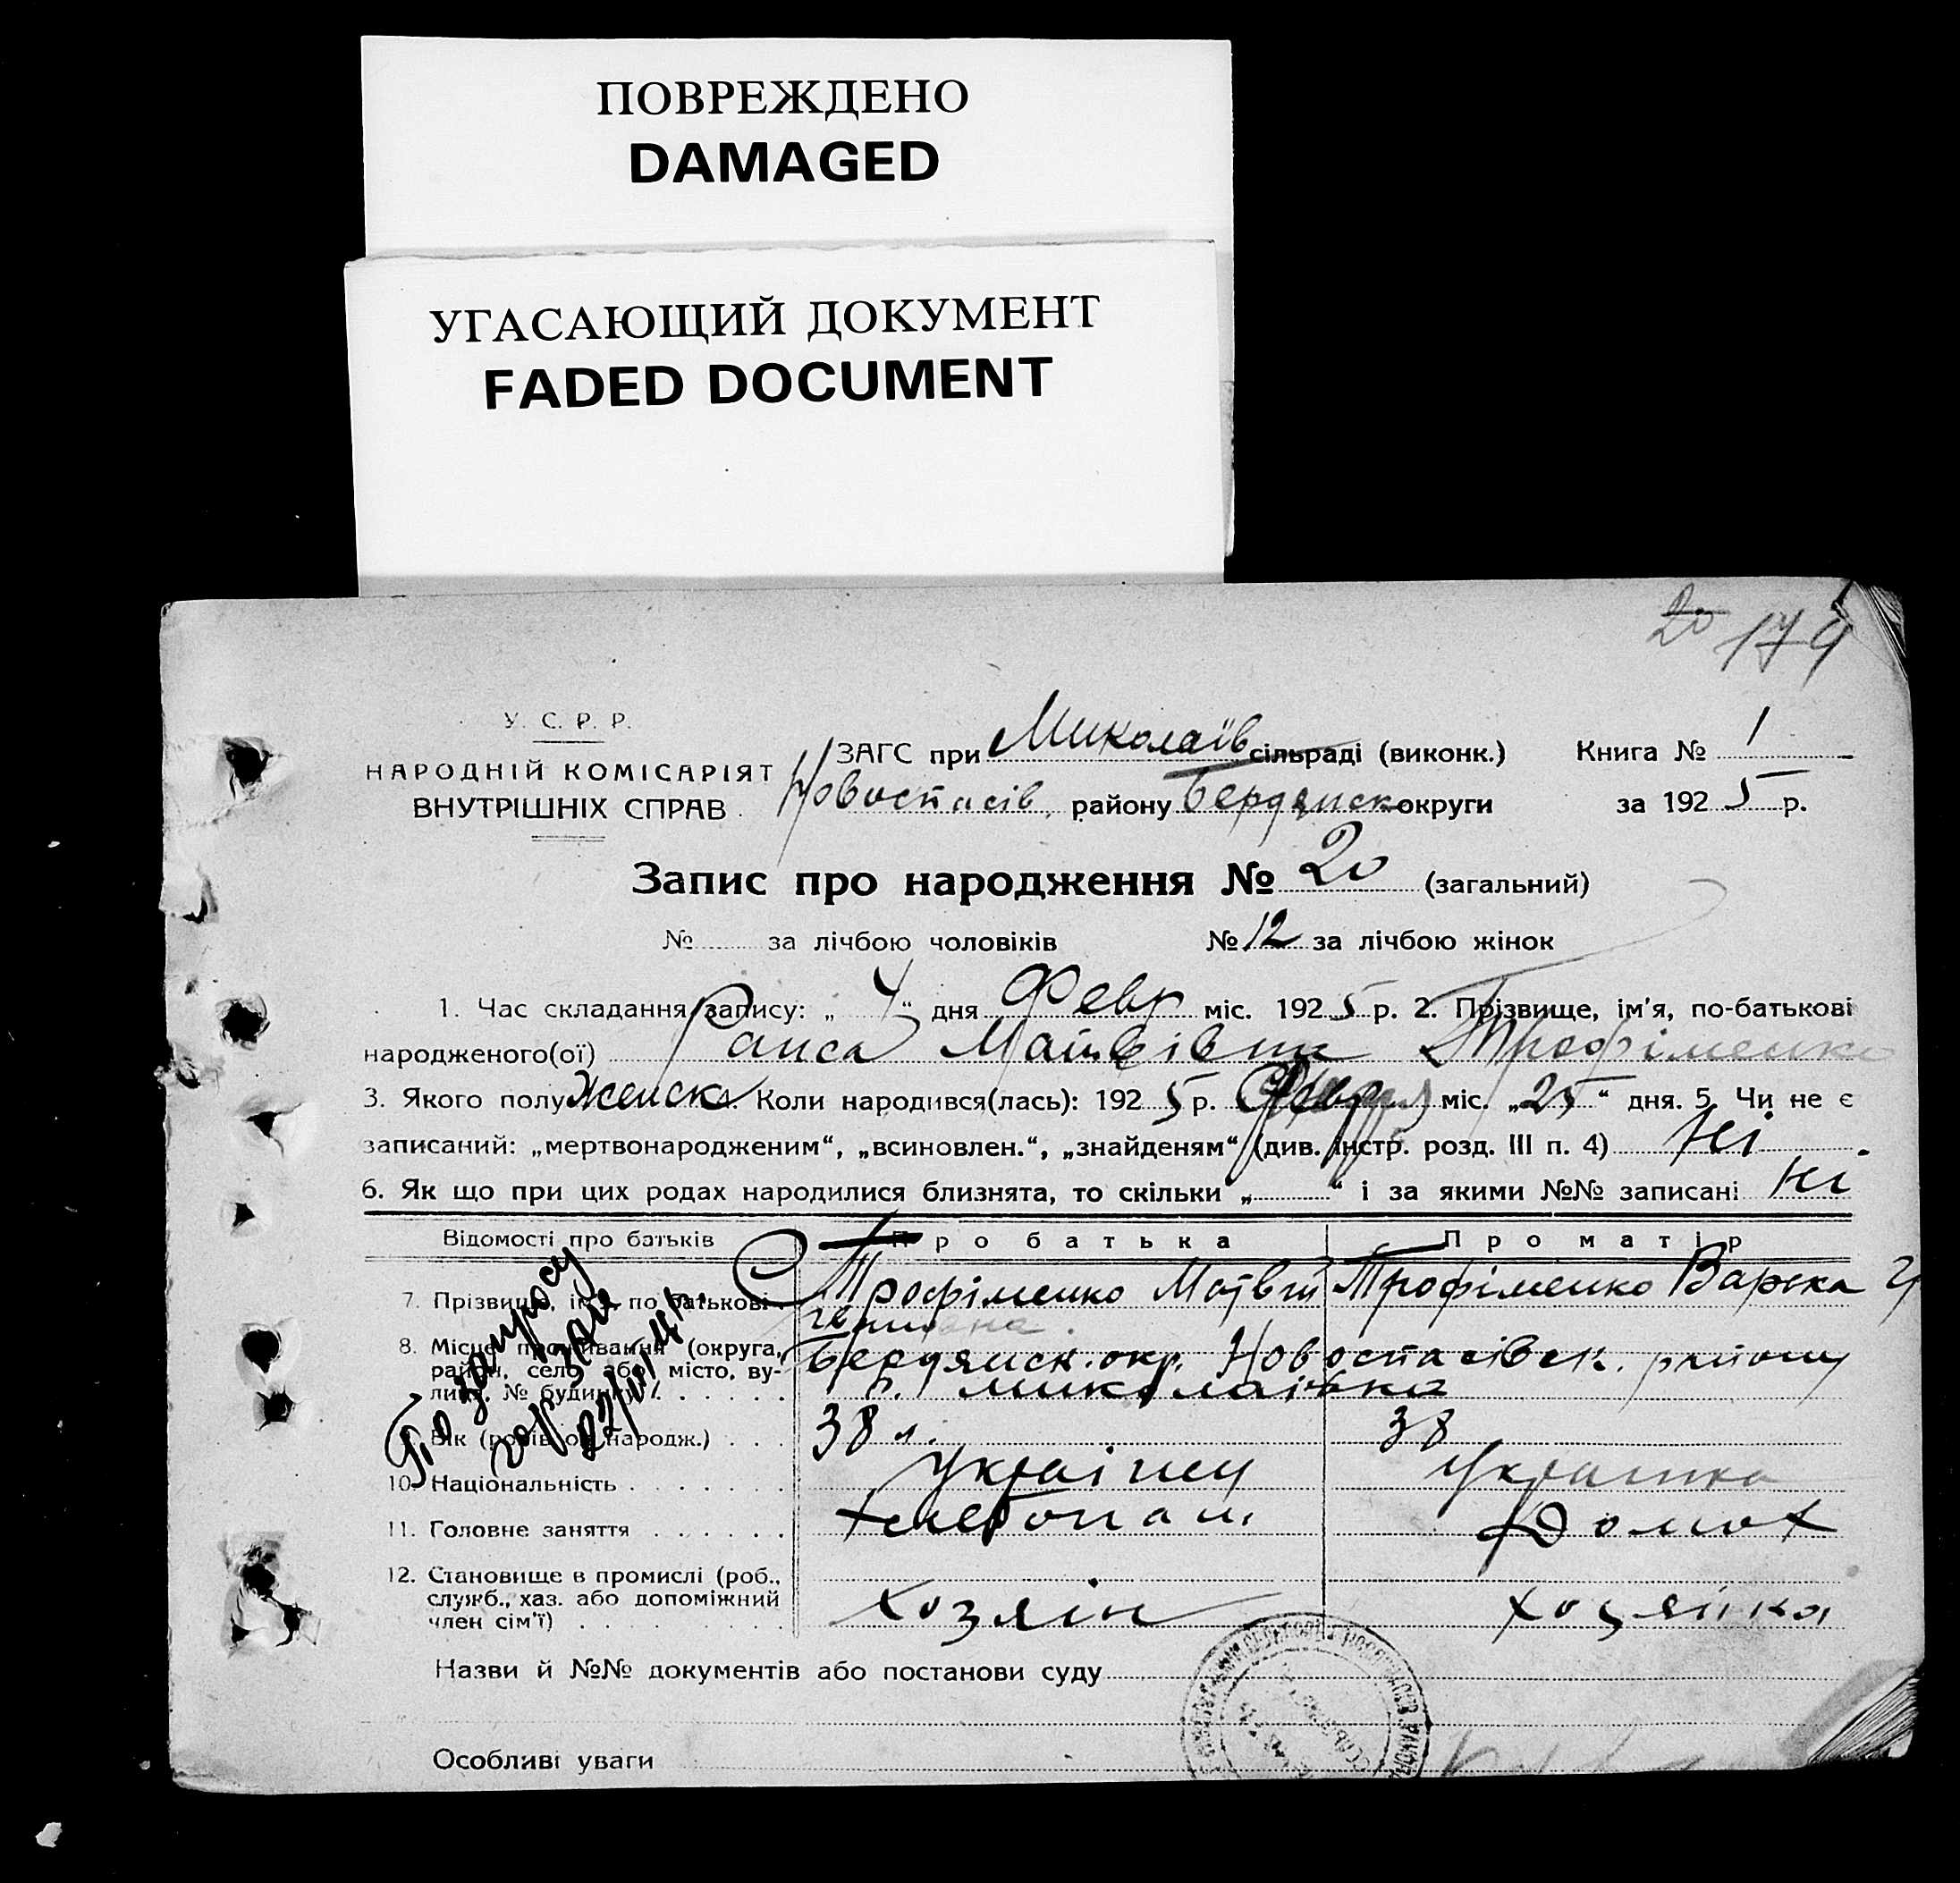 ПОВРЕЖДЕНО
DAMAGED
УГАСАЮЩИЙ ДОКУМЕНТ
FADED DOCUMENT
20 179
У. С. Р. Р.
НАРОДНІЙ КОМІСАРІЯТ
ВНУТРІШНІХ СПРАВ
ЗАГС при Миколаїв сільраді (виконк.) Книга № 1
Новоспасів району Бердянск округи за 1925 р.
Запис про народження № 20 (загальний)
№ за лічбою чоловіків № 12 за лічбою жінок
1. Час складання запису: „ 4 “ дня Февр міс. 1925 р. 2. Прізвище, ім'я, по-батькові
народженого(ої) Раиса Матвівна Трофіменко
3. Якого полу Женск. Коли народився(лась): 1925 р. міс. „25“ дня. 5. Чи не є
записаний: „мертвонародженим“, „всиновлен.“, „знайденям“ (див. інстр. розд. III п. 4) Ні.
6. Як що при цих родах народилися близнята, то скільки „ “ і за якими №№ записані Ні
Відомості про батьків Про батька Про матір
7. Прізвище, ім'я, по батькові Трофіменко Матвій Трофіменко Варка
8. Місце проживання (округа, район, село або місто, вулиця, № будинку) Бердянск. окр. Новоспасівск. району
с. Миколаівка
9. Вік (років од народж.) 38 л. 38
10. Національність Українец Українка
11. Головне заняття Хлебопаш. Домох
12. Становище в промислі (роб.,
служб., хаз. або допоміжний
член сім'ї) Хозяін хозяйка
По запросу
ЗАГС
Назви й №№ документів або постанови суду
Особливі уваги